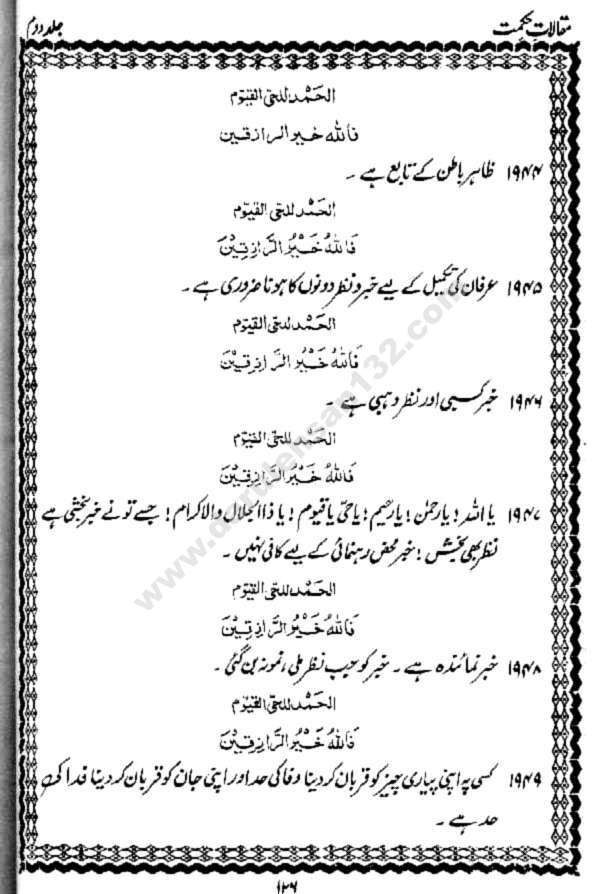 مقالاتِ حکمت
جلد دوم
الحَمْد للحَیِّ القیّوم
فاللہ خیر الرازقین
۱۹۴۴ ظاہر باطن کے تابع ہے ۔
الحَمْد للحَیِّ القیّوم
فَاللہُ خَیْرُ الرَّازِقِیْنَ
۱۹۴۵ عرفان کی تکمیل کے لیے خبر و نظر دونوں کا ہونا ضروری ہے ۔
الحَمْد للحَیِّ القیّوم
فَاللہُ خَیْرُ الرَّازِقِیْنَ
۱۹۴۶ خبر کسبی اور نظر وہبی ہے ۔
الحَمْد للحَیِّ القیّوم
فَاللہُ خَیْرُ الرَّازِقِیْنَ
۱۹۴۷ یا اللہ ! یا رحمٰن ! یا رحیم ! یا حیّ یا قیوم ! یا ذا الجلال والاکرام ! جسے تو نے خبر بخشی ہے
نظر بھی بخش ! خبر محض رہنمائی کے لیے کافی نہیں ۔
الحَمْد للحَیِّ القیّوم
فَاللہُ خَیْرُ الرَّازِقِیْنَ
۱۹۴۸ خبر نمائندہ ہے ۔ خبر کو جب نظر ملی ، نمونہ بن گئی ۔
الحَمْد للحَیِّ القیّوم
فَاللہُ خَیْرُ الرَّازِقِیْنَ
۱۹۴۹ کسی پہ اپنی پیاری چیز کو قربان کر دینا وفا کی حد اور اپنی جان کو قربان کر دینا فدا کی
حد ہے ۔
۱۲۶
www.darulehsan132.com